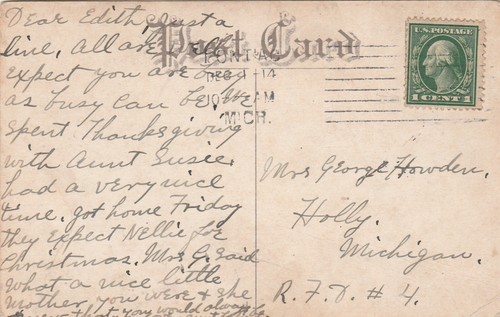 Dear Edith, Just a
line, all are well
expect you are
as busy can be. We
spent Thanksgiving
with Aunt Susie
had a very nice
time, got home Friday
they expect Nellie for
Christmas. Mrs G. said
what a nice little
Mother, you were & she
that you would always
Post Card
PONTIAC
DEC 1 14
AM
MICH.
U.S. POSTAGE
1 CENT 1
Mrs George Howden,
Holly,
Michigan.
R.F.D. # 4.